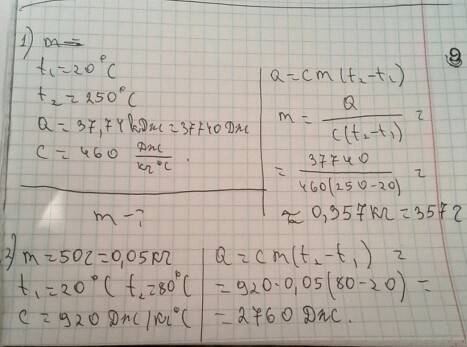 1) m=
t₁=20°C
t₂=250°C
Q=37,74кДж=37740Дж
C=460 Дж/кг°C
m-?
Q=cm(t₂-t₁)
m= Q/c(t₂-t₁) =
= 37740/460(250-20) =
≈ 0,357кг=357г
2) m=50г=0,05кг
t₁=20°C t₂=80°C
c=920 Дж/кг°C
Q=cm(t₂-t₁) =
=920·0,05(80-20)=
=2760 Дж.